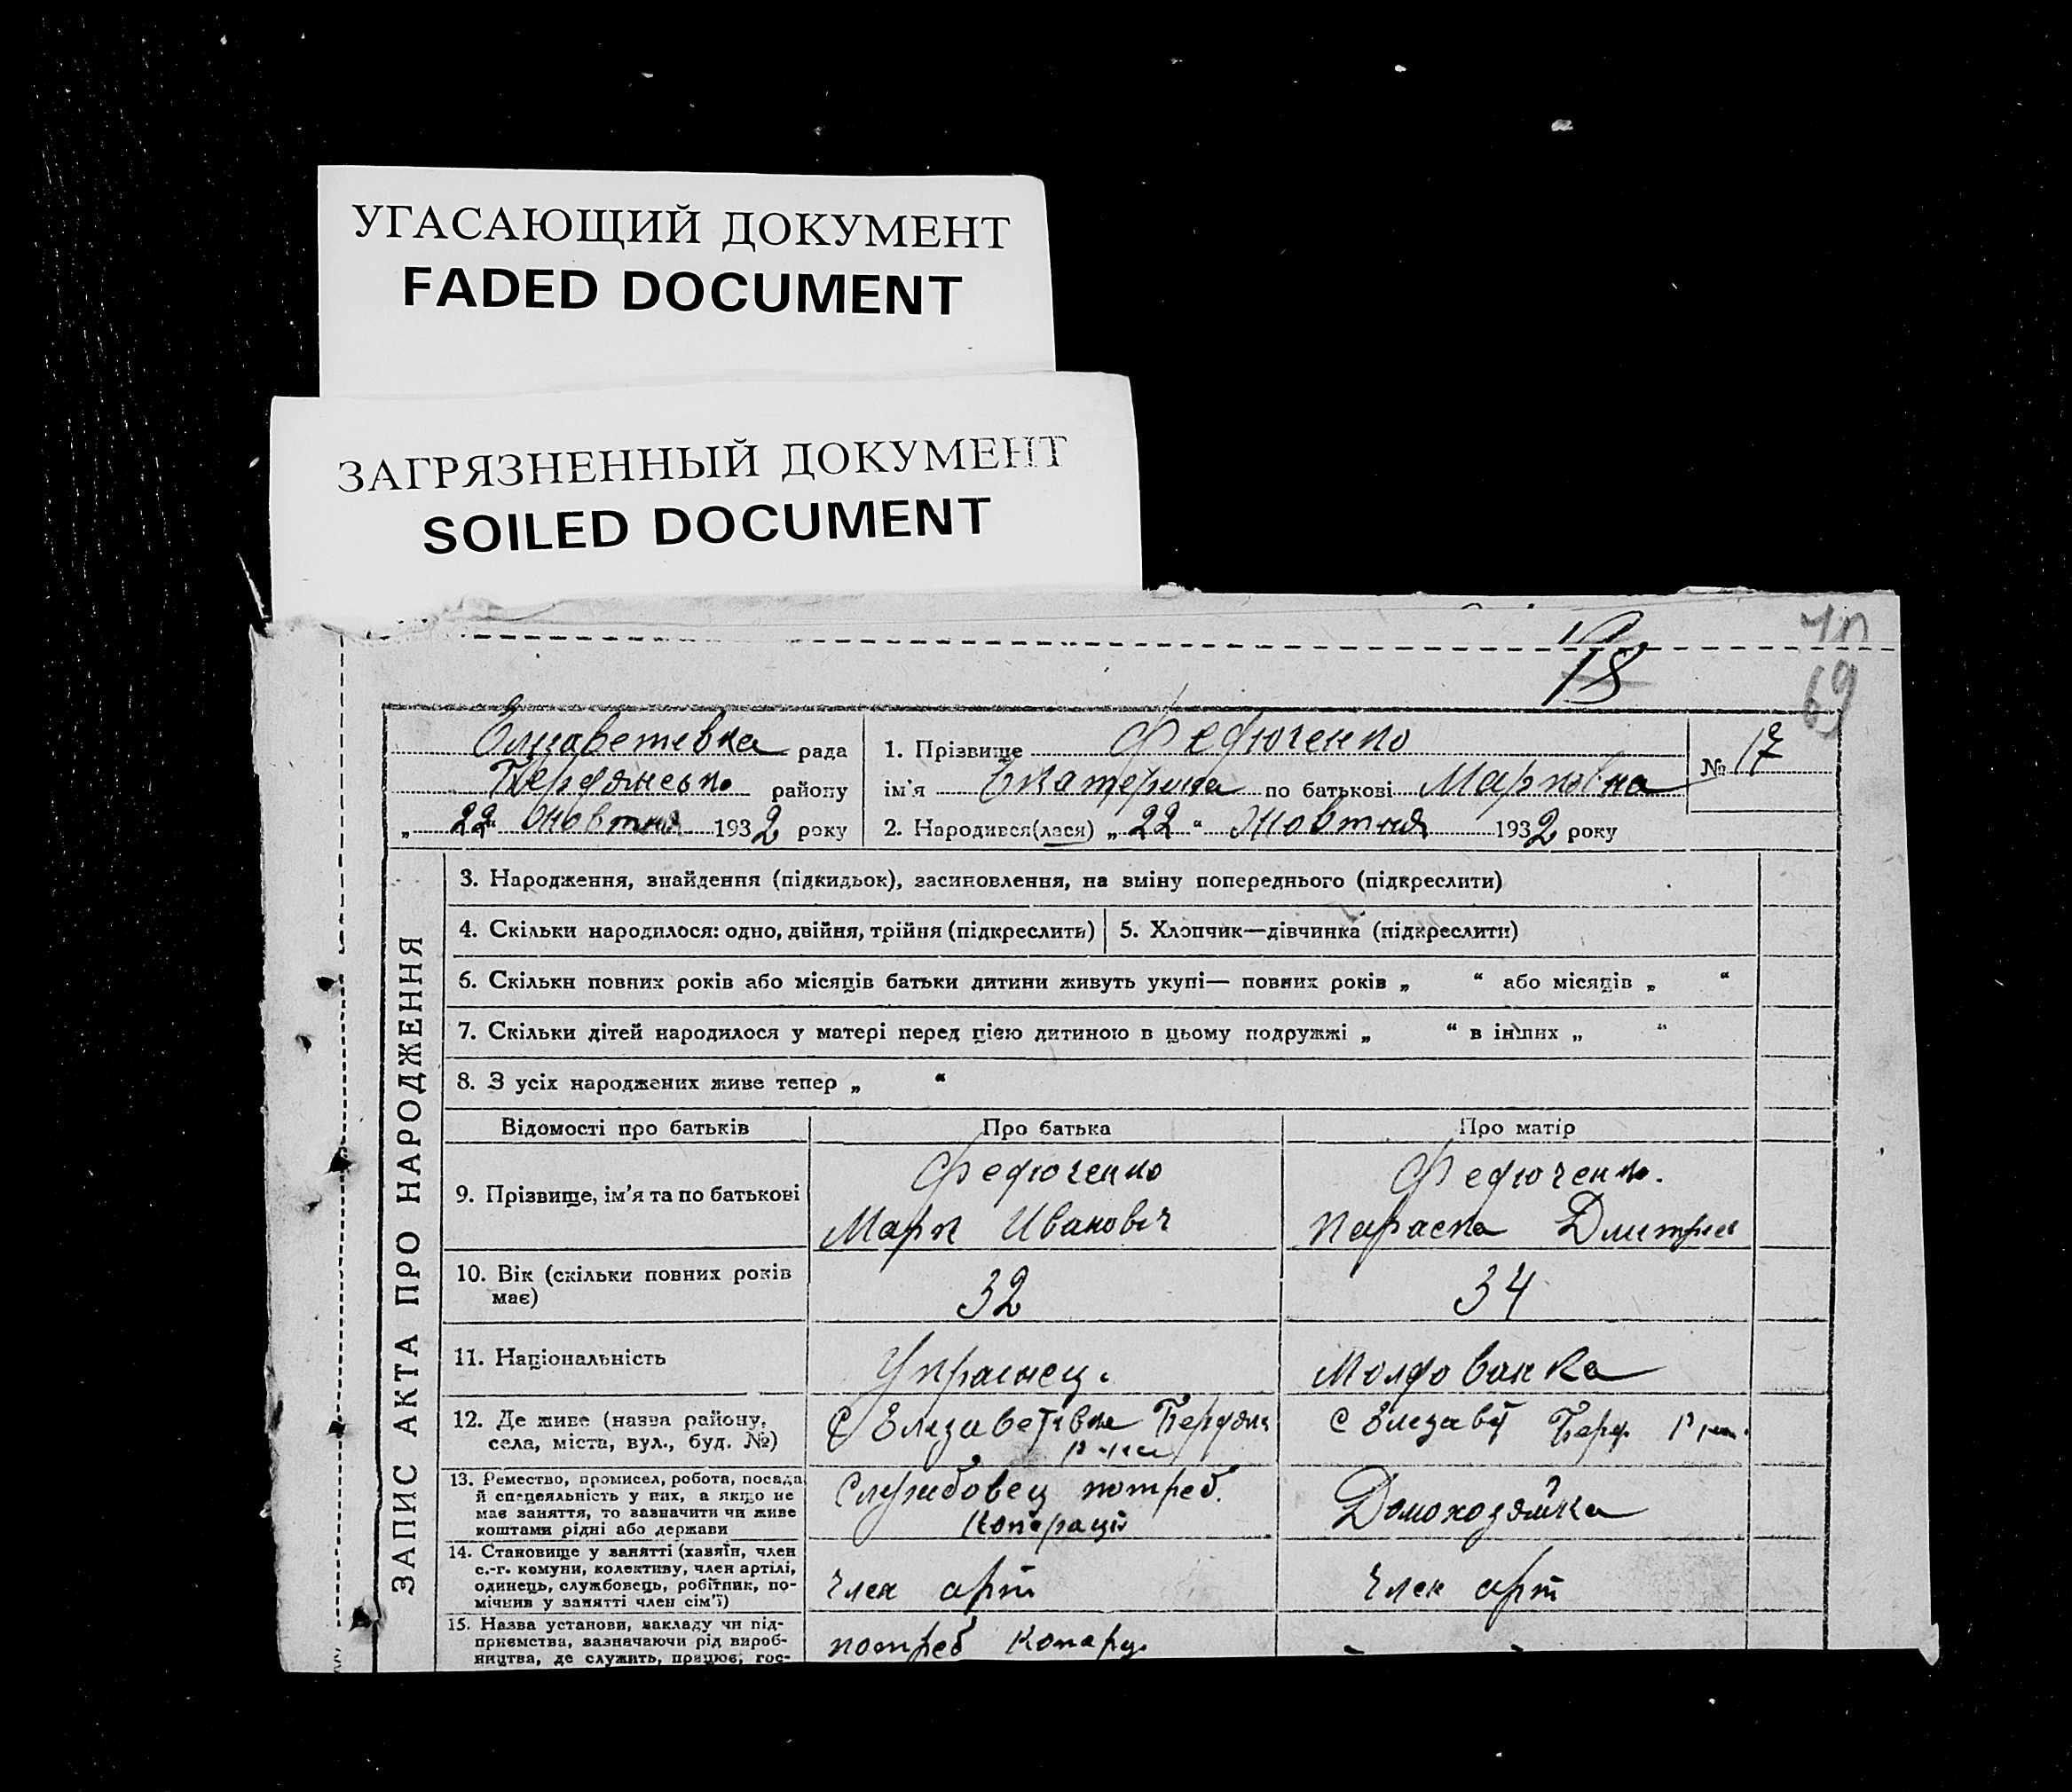 УГАСАЮЩИЙ ДОКУМЕНТ
FADED DOCUMENT
ЗАГРЯЗНЕННЫЙ ДОКУМЕНТ
SOILED DOCUMENT
18
69
Елизаветевка рада
Бердянсько району
„ 22 " жовтня 1932 року
1. Прізвище Федюченко
ім'я Екатерина по батькові Марковна
№ 17
2. Народився(лася) „ 22 “ Жовтня 1932 року
ЗАПИС АКТА ПРО НАРОДЖЕННЯ
3. Народження, знайдення (підкидьок), засиновлення, на зміну попереднього (підкреслити)
4. Скільки народилося: одно, двійня, трійня (підкреслить) 5. Хлопчик—дівчинка (підкреслити)
6. Скільки повних років або місяців батьки дитини живуть укупі— повних років „ “ або місяців „ “
7. Скільки дітей народилося у матері перед цією дитиною в цьому подружжі „ “ в інших „ “
8. З усіх народжених живе тепер „ “
Відомості про батьків Про батька Про матір
9. Прізвище, ім'я та по батькові
Федюченко
Марк Иванович
Федюченко.
Параска Дмитриев
10. Вік (скільки повних років
має)
32
34
11. Національність
Украінец.
Молдованка
12. Де живе (назва району,
села, міста, вул., буд. №)
С Елизаветівка Бердянс
С Елизавет Берд.
13. Ремество, промисел, робота, посада
й спеціяльність у них, а якщо не
має заняття, то зазначити чи живе
коштами рідні або держави
Службовец потреб.
Коперації
Домохозяйка
14. Становище у занятті (хазяїн, член
с.-г. комуни, колективу, член артілі,
одинець, службовець, робітник, по-
мічник у занятті член сім'ї)
Член арт
Член арт
15. Назва установи, закладу чи під-
приємства, зазначаючи рід вироб-
ництва, де служить, працює, гос-
потреб Копарц.
- -